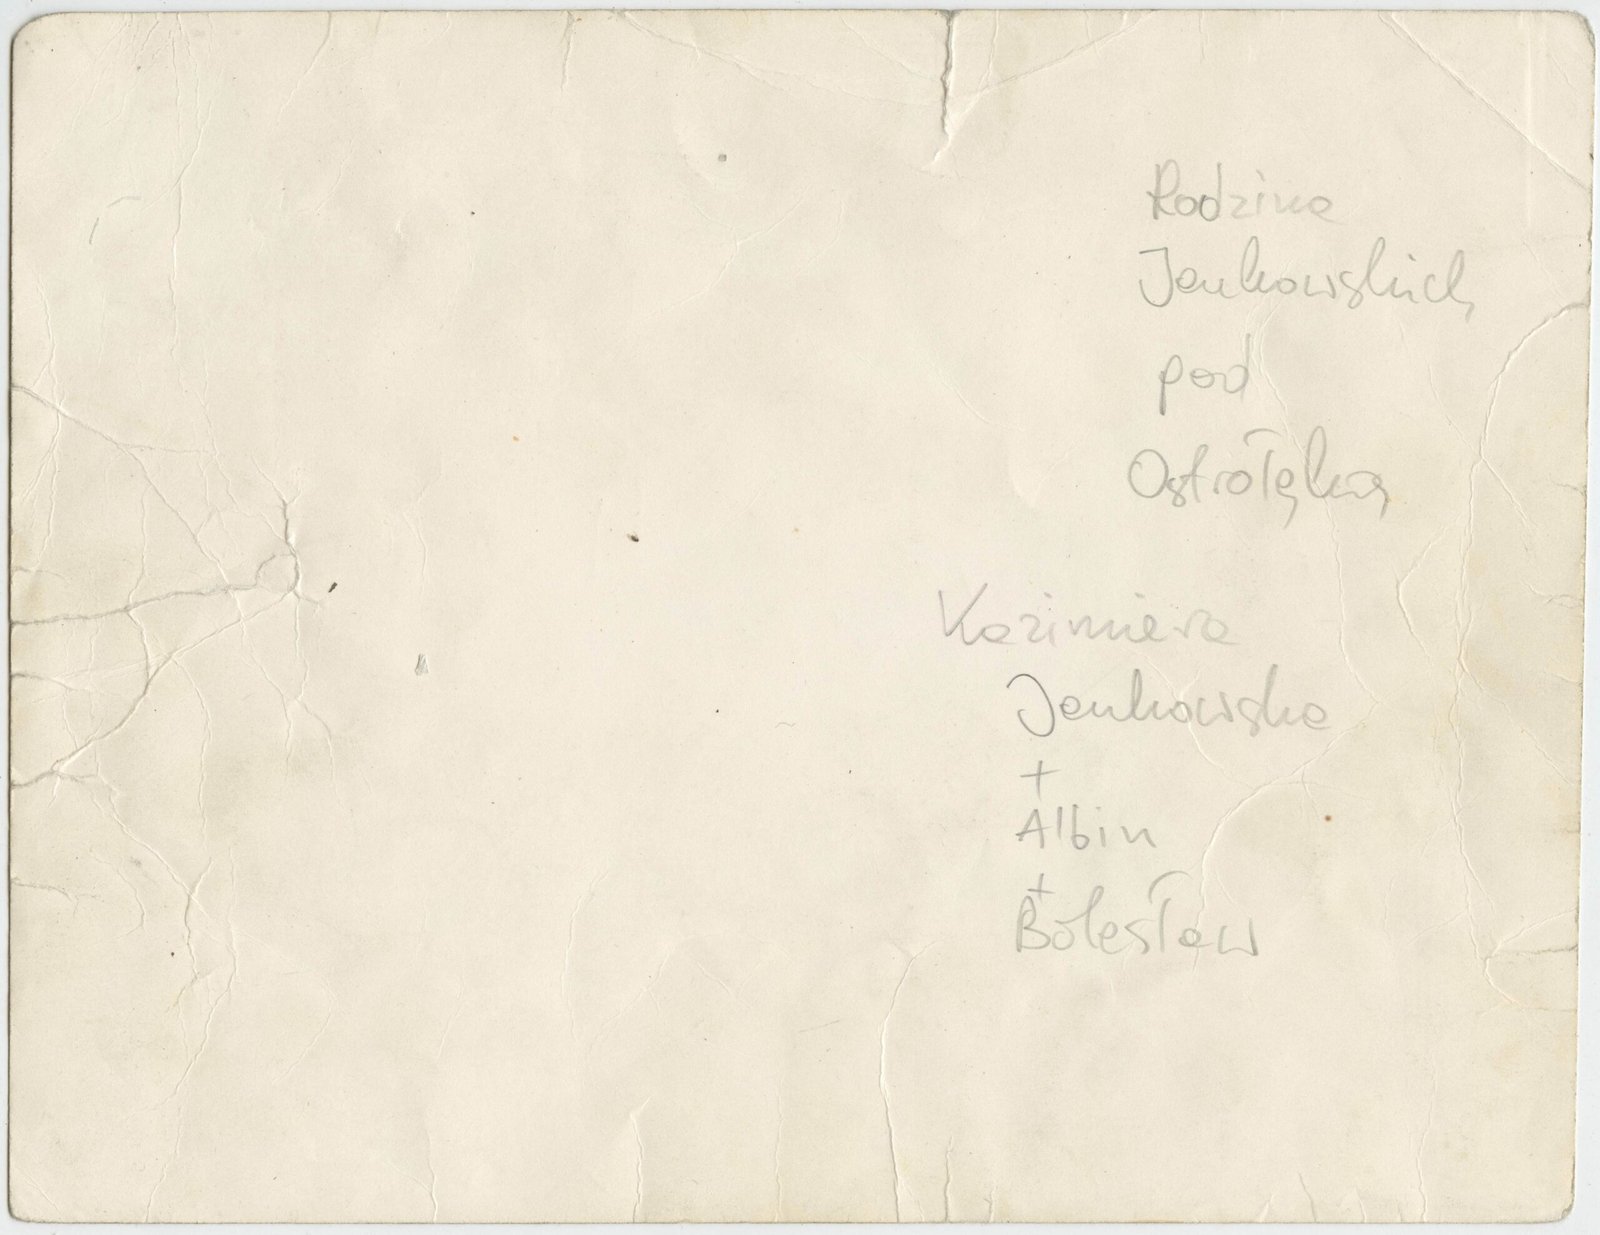 Rodzina
Jankowskich
pod
Ostrołęką
Kazimiera
Jankowska
+
Albin
+
Bolesław